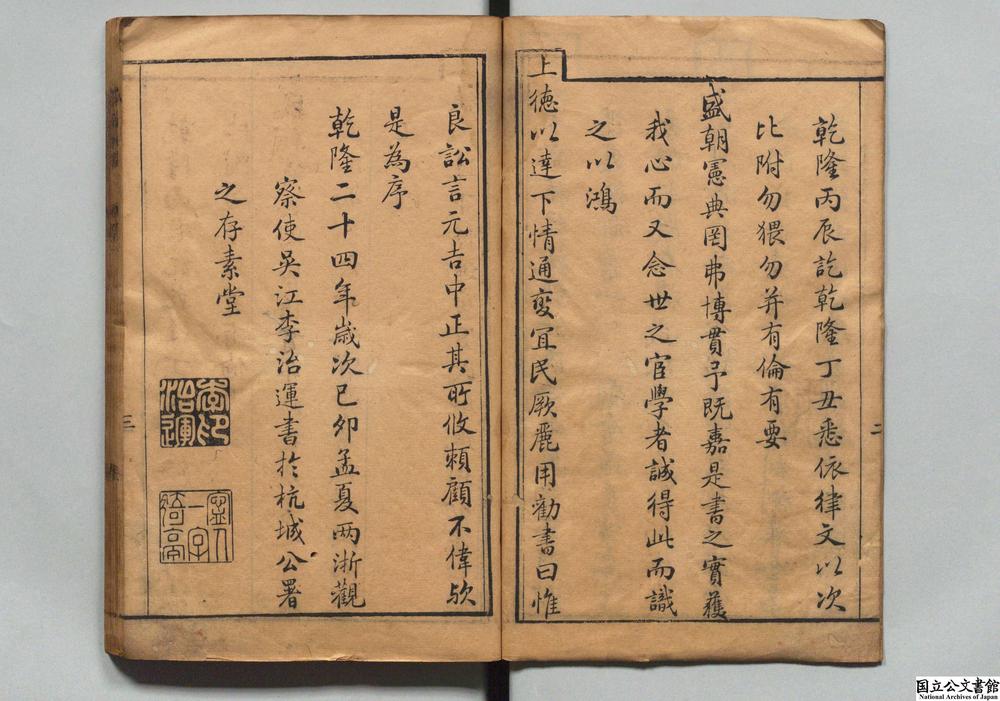 乾隆丙辰訖乾隆丁丑悉依律文以次
比附勿猥勿并有倫有要
盛朝憲典罔弗博貫予既嘉是書之實獲
我心而又念世之宦學者誠得此而識
之以鴻
上德以達下情通變宜民厥麗用勸書曰惟
二
良訟言元吉中正其所攸賴顧不偉歟
是為序
乾隆二十四年歲次己卯孟夏兩浙觀
察使吳江李治運書於杭城公署
之存素堂
李治運印
一字
三
国立公文書館
National Archives of Japan